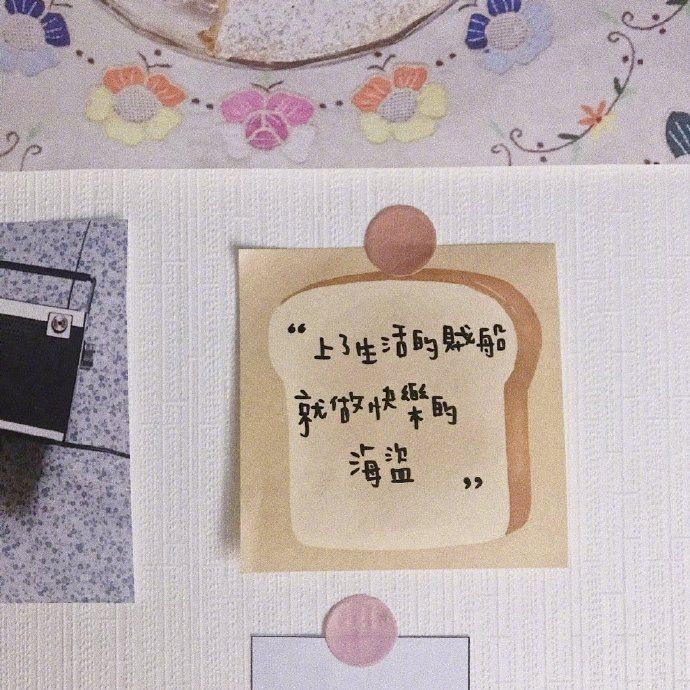 “上了生活的賊船
就做快樂的
海盗”